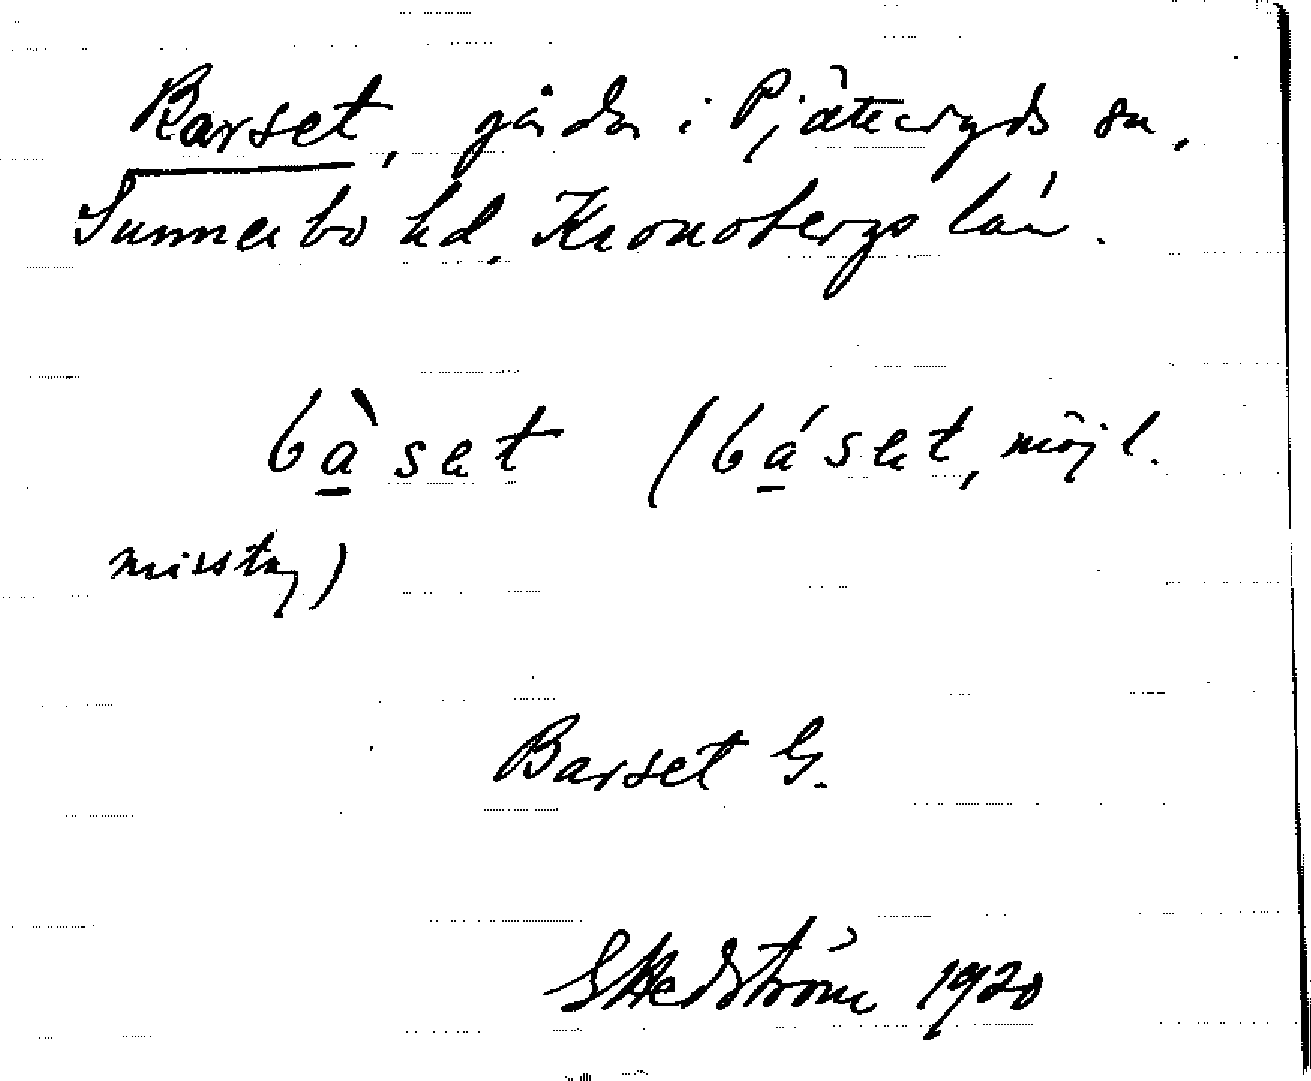 Barset, gårdar i Pjätteryds sn,
Sunnerbo hd, Kronobergs län.
bàset (báset, möjl.
misstag)
Barset G.
G Hedström 1920